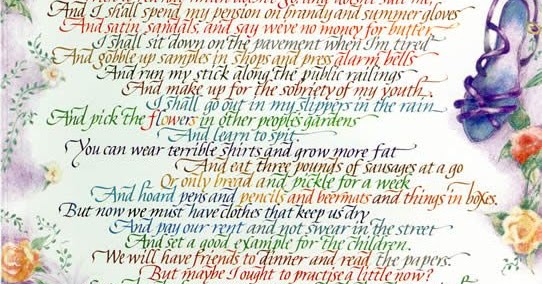 And I shall spend my pension on brandy and summer gloves
And satin sandals, and say we've no money for butter.
I shall sit down on the pavement when I'm tired
And gobble up samples in shops and press alarm bells
And run my stick along the public railings
And make up for the sobriety of my youth.
I shall go out in my slippers in the rain
And pick the flowers in other people's gardens
And learn to spit.
You can wear terrible shirts and grow more fat
And eat three pounds of sausages at a go
Or only bread and pickle for a week
And hoard pens and pencils and beermats and things in boxes.
But now we must have clothes that keep us dry
And pay our rent and not swear in the street
And set a good example for the children.
We will have friends to dinner and read the papers.
But maybe I ought to practise a little now?